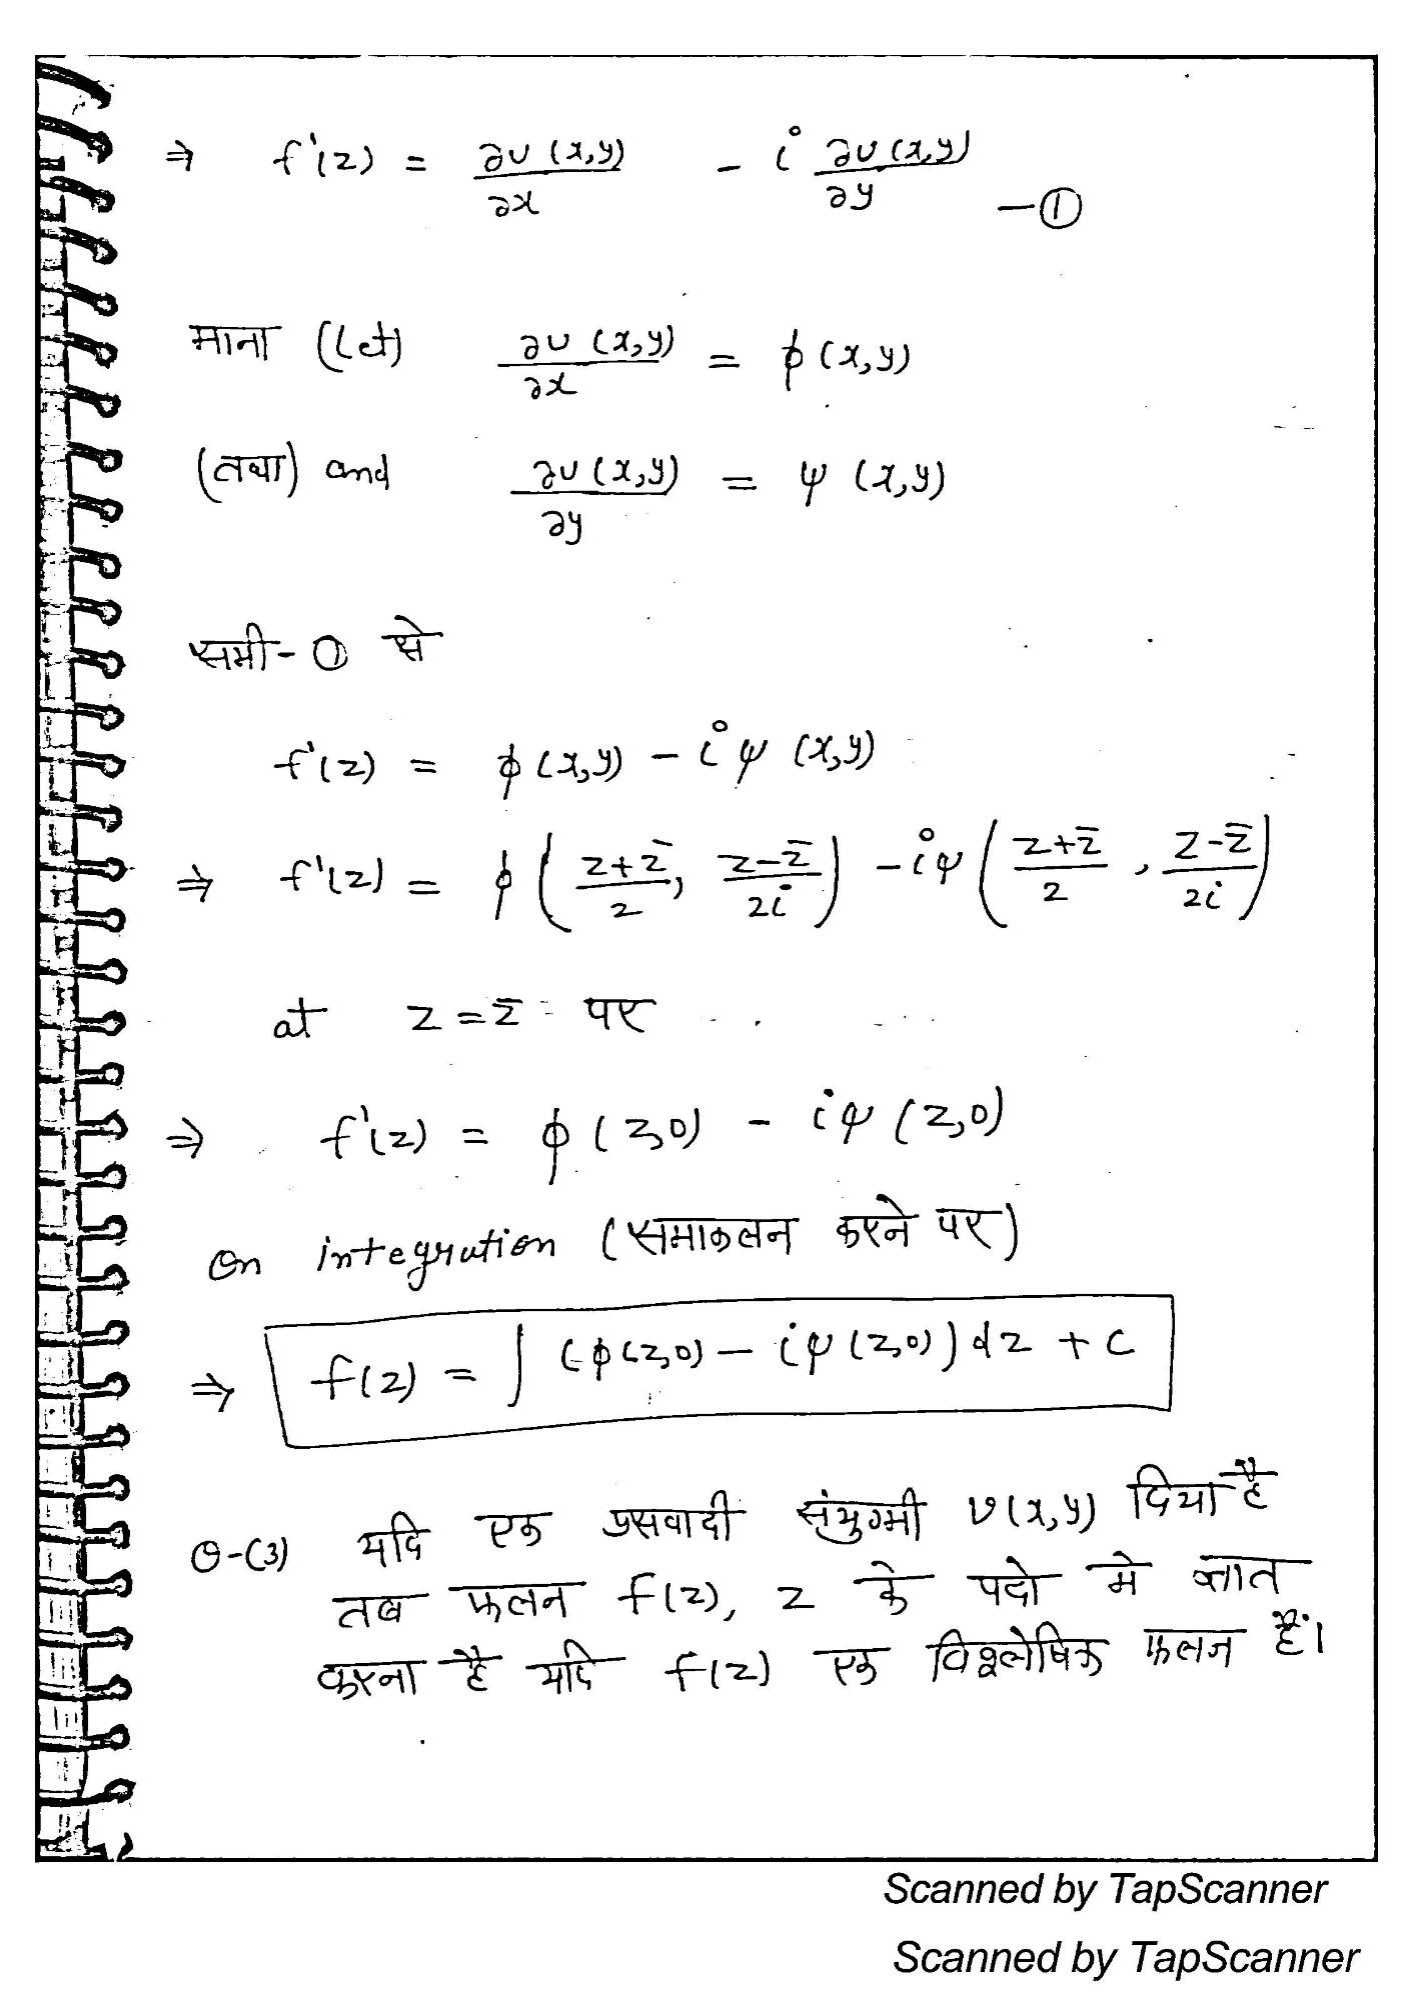 ⇒ f'(z) = ∂u(x,y)/∂x - i ∂u(x,y)/∂y —①
माना (Let) ∂u(x,y)/∂x = ϕ(x,y)
(तथा) and ∂u(x,y)/∂y = ψ(x,y)
समी-① से
f'(z) = ϕ(x,y) - iψ(x,y)
⇒ f'(z) = ϕ((z+z̄)/2, (z-z̄)/2i) - iψ((z+z̄)/2, (z-z̄)/2i)
at z = z̄ पर
⇒ f'(z) = ϕ(z,0) - iψ(z,0)
on integration (समाकलन करने पर)
⇒ f(z) = ∫(ϕ(z,0) - iψ(z,0))dz + c
θ-(3) यदि एक प्रसवादी संयुग्मी v(x,y) दिया है
तब फलन f(z), z के पदो मे ज्ञात
करना है यदि f(z) एक विश्लेषिक फलन है।
Scanned by TapScanner
Scanned by TapScanner